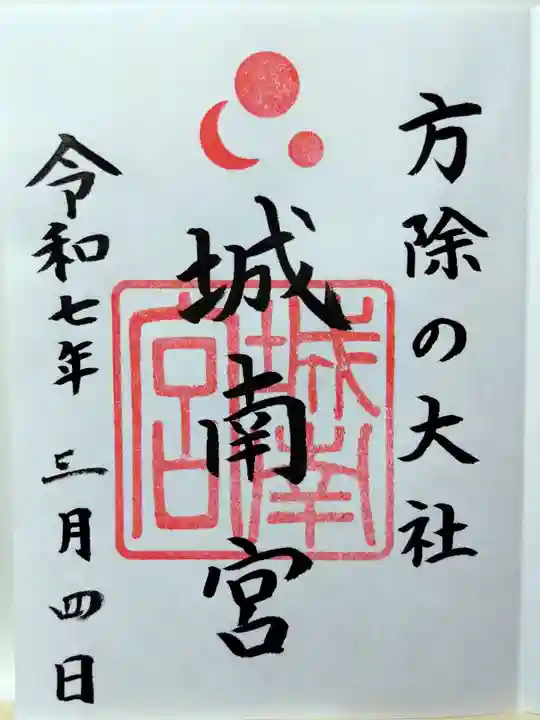 方除の大社
城南宮
城南宮
令和七年 三月四日